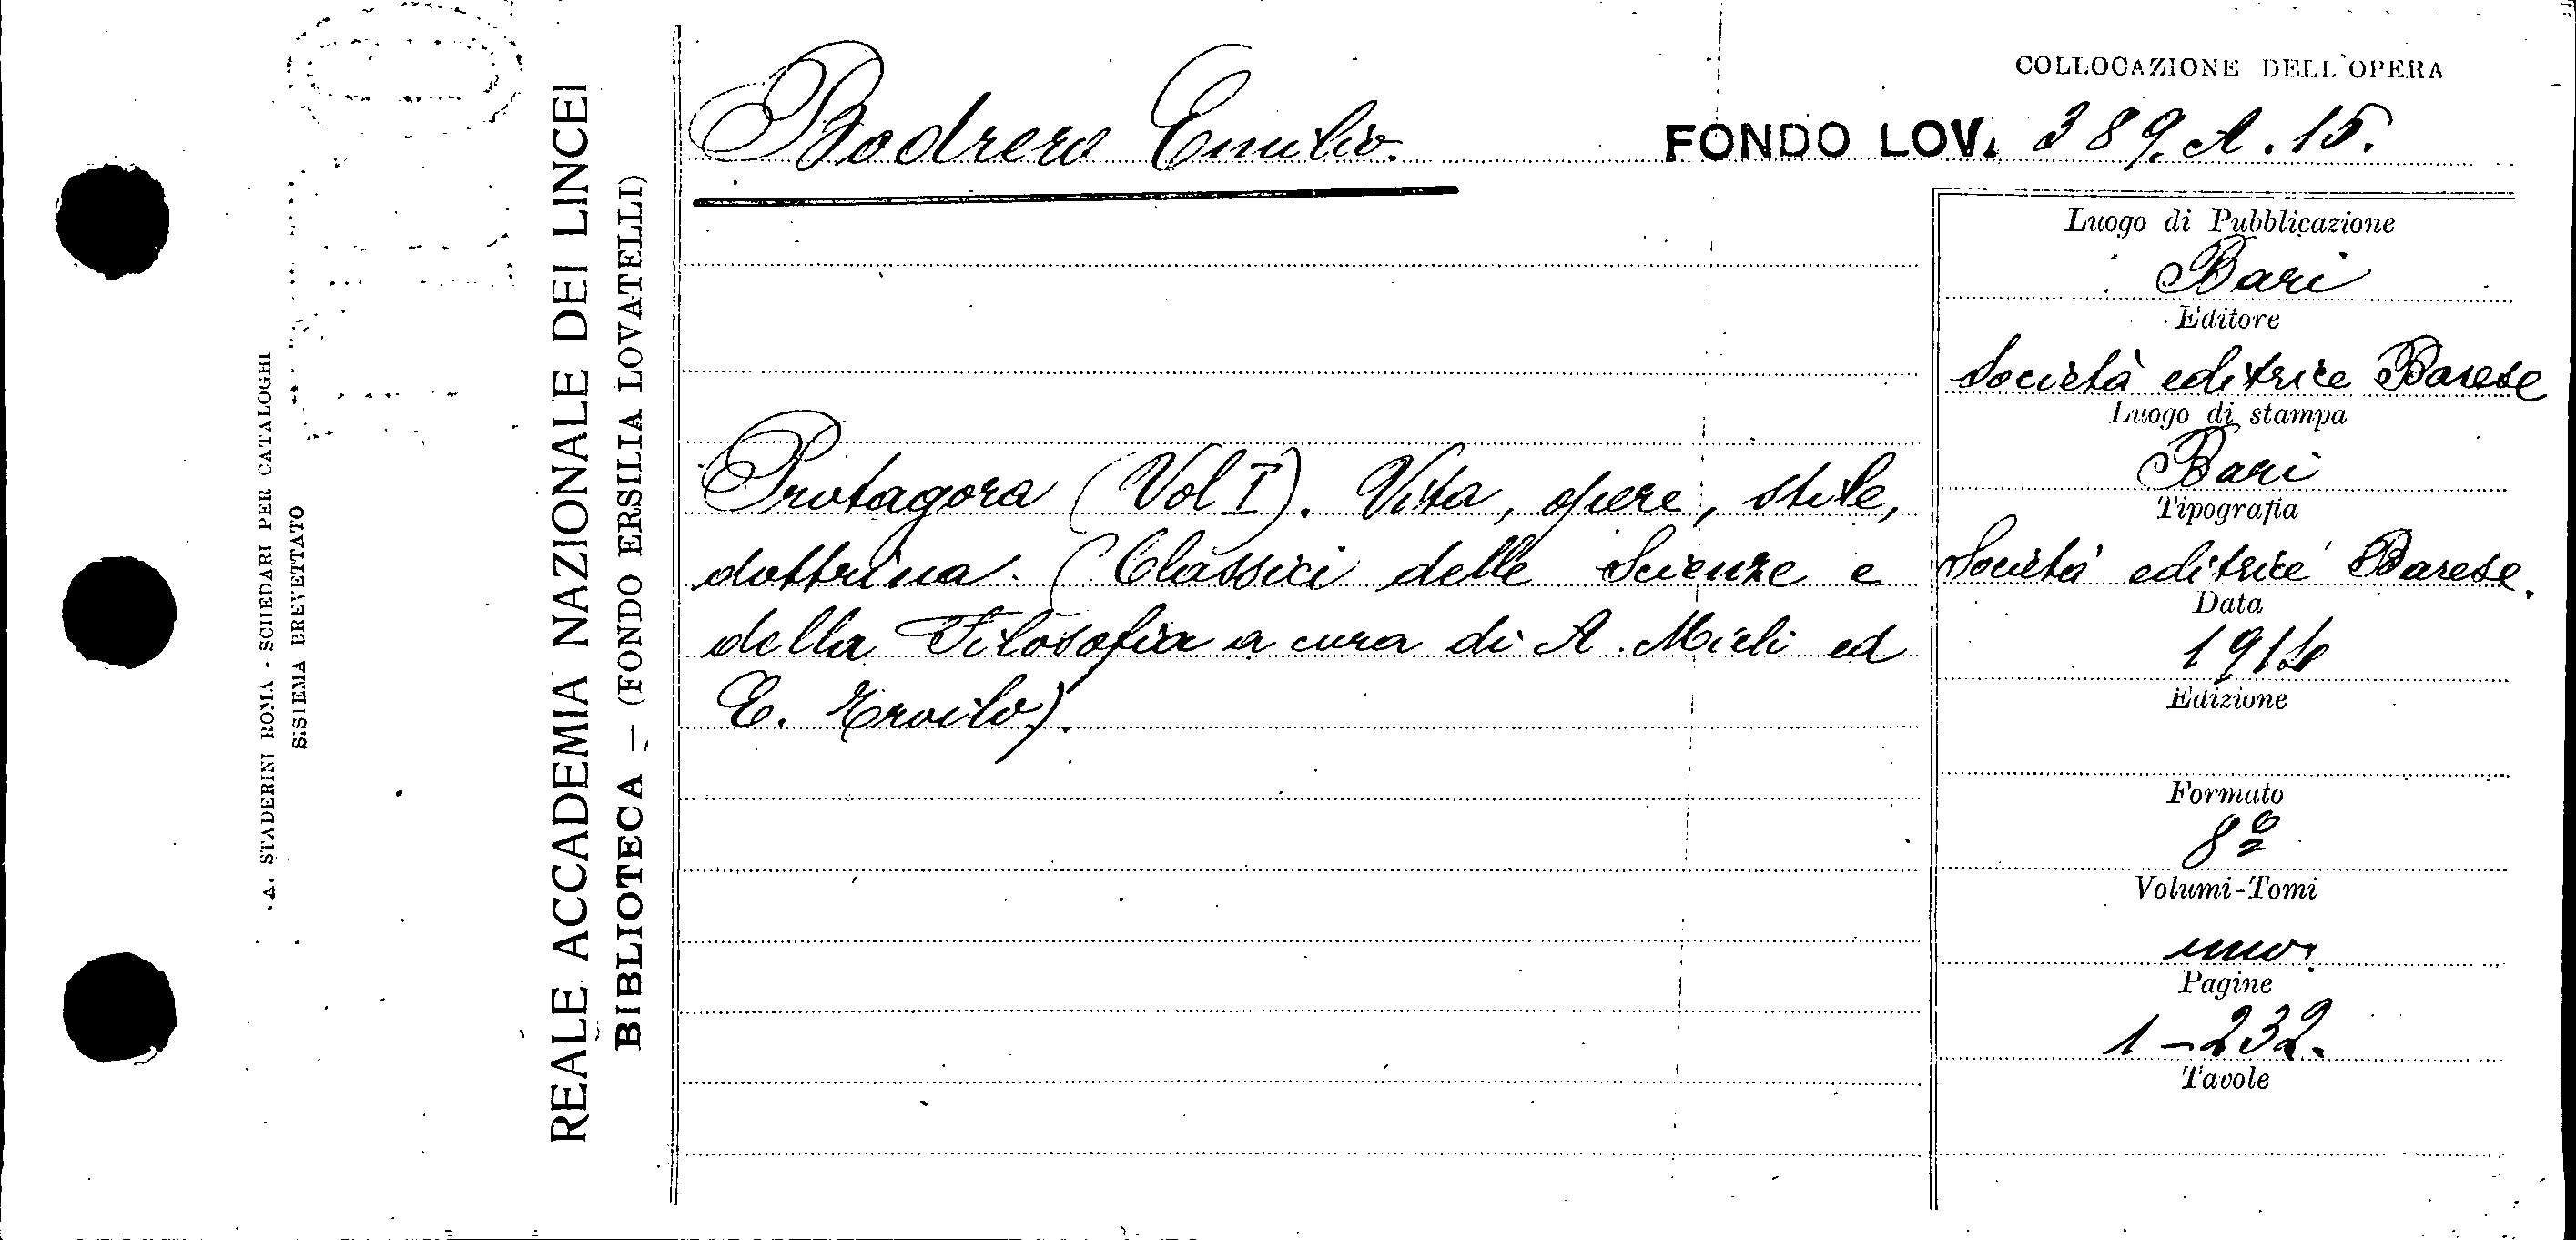 COLLOCAZIONE DELL'OPERA
Bodrero Emilio.
FONDO LOV. 389. A. 15.
A. STADERINI ROMA - SCHEDARI PER CATALOGHI
SISIEMA BREVETTATO
REALE ACCADEMIA NAZIONALE DEI LINCEI
BIBLIOTECA = (FONDO ERSILIA LOVATELLI)
Protagora (Vol I). Vita, opere, stile,
dottrina. (Classici delle Scienze e
della Filosofia a cura di A. Mieli ed
E. Troilo).
Luogo di Pubblicazione
Bari
Editore
Società editrice Barese
Luogo di stampa
Bari
Tipografia
Società editrice Barese.
Data
1914
Edizione
Formato
8º
Volumi-Tomi
uno.
Pagine
1-232.
Tavole